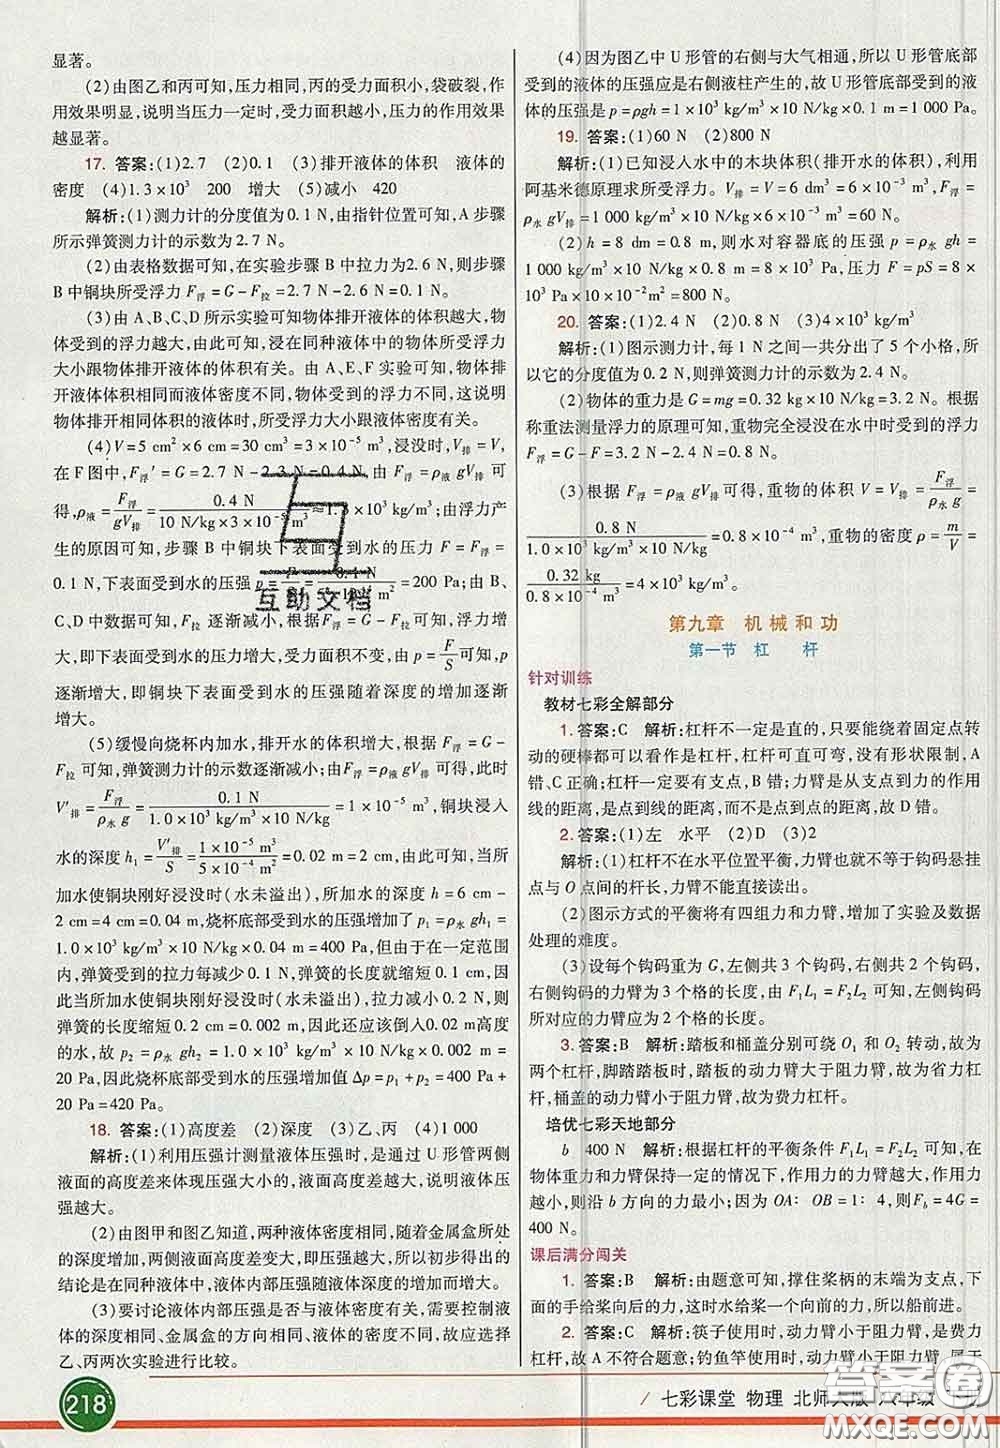 显著。
(2)由图乙和丙可知,压力相同,丙的受力面积小,袋破裂,作
用效果明显,说明当压力一定时,受力面积越小,压力的作用效果
越显著。
17. 答案:(1)2.7 (2)0.1 (3)排开液体的体积 液体的
密度 (4)1.3×10³ 200 增大 (5)减小 420
解析:(1)测力计的分度值为0.1 N,由指针位置可知,A步骤
所示弹簧测力计的示数为2.7 N。
(2)由表格数据可知,在实验步骤B中拉力为2.6 N,则步骤
B中铜块所受浮力 F浮=G-F拉=2.7 N-2.6 N=0.1 N。
(3)由A、B、C、D所示实验可知物体排开液体的体积越大,
物体受到的浮力越大,由此可知,浸在同种液体中的物体所受浮力
大小跟物体排开液体的体积有关。由A、E、F实验可知,物体
排开液体体积相同而液体密度不同,物体受到的浮力不同,这说明
物体排开相同体积的液体时,所受浮力大小跟液体密度有关。
(4)V=5 cm²×6 cm=30 cm³=3×10⁻⁵ m³,浸没时,V排=V,
在F图中,F浮′=G=2.7 N-2.3 N=0.4 N,由 F浮=ρ液 gV排 可
得,ρ液=F浮/gV排=0.4 N/(10 N/kg×3×10⁻⁵ m³)≈1.3×10³ kg/m³;由浮力产
生的原因可知,步骤B中铜块下表面受到水的压力 F=F浮=
0.1 N,下表面受到水的压强 p=F/S=0.1 N/(5×10⁻⁴ m²)=200 Pa;由B、
C、D中数据可知,F拉 逐渐减小,根据 F浮=G-F拉 可知,浮力增
大,即下表面受到水的压力增大,由 p=F/S可知,下表面受到的 p
逐渐增大,即铜块下表面受到水的压强随着深度的增大而逐渐
增大。
(5)缓慢向烧杯内加水,排开水的体积增大,根据 F浮=G-
F拉 可知,弹簧测力计的示数逐渐减小;由 F浮=ρ液 gV排 可得,此时
V′排=F浮/(ρ水 g)=0.1 N/(1.0×10³ kg/m³×10 N/kg)=1×10⁻⁵ m³,铜块浸入
水的深度 h₁=V′排/S=(1×10⁻⁵ m³)/(5×10⁻⁴ m²)=0.02 m=2 cm;由此可知,当所
加水使铜块刚好浸没时(水未溢出),所加水的深度 h=6 cm-
2 cm=4 cm=0.04 m,烧杯底部受到水的压强增加了 p₁=ρ水 gh₁=
1.0×10³ kg/m³×10 N/kg×0.04 m=400 Pa,但由于在一定范围
内,弹簧受到的拉力每减少0.1 N,弹簧的长度就缩短0.1 cm,
因此当所加水使铜块刚好浸没时(水未溢出),拉力减小0.2 N,
则弹簧的长度缩短0.2 cm=0.002 m,因此还应该倒入0.2 m高度
的水,故 p₂=ρ水 gh₂=1.0×10³ kg/m³×10 N/kg×0.002 m=
20 Pa,因此烧杯底部受到水的压强增加值 Δp=p₁+p₂=400 Pa+
20 Pa=420 Pa。
18. 答案:(1)高度差 (2)深度 (3)乙、丙 (4)1 000
解析:(1)利用压强计测量液体压强时,是通过U形管两侧
液面的高度差来体现压强大小的,液面高度差越大,说明液体压
强越大。
(2)由图甲和图乙知道,两种液体密度相同,随着金属盒所处
的深度增加,两侧液面高度差变大,即压强变大,故初步得出的
结论是在同种液体中,液体内部压强随液体深度的增加而增大。
(3)要讨论液体内部压强是否与液体密度有关,需要控制液
体的深度相同、金属盒的方向相同、液体的密度不同,故应选择
乙、丙两次实验进行比较。
218
(4)因为图乙中U形管的右侧与大气相通,所以U形管底部
受到的液体的压强应是右侧液柱产生的,故U形管底部受到的液
体的压强是 p=ρgh=1×10³ kg/m³×10 N/kg×0.1 m=1 000 Pa。
19. 答案:(1)60 N (2)800 N
解析:(1)已知浸入水中的木块体积(排开水的体积),利用
阿基米德原理求所受浮力。V排=V=6 dm³=6×10⁻³ m³,F浮=
ρ水 gV排=1 000 kg/m³×10 N/kg×6×10⁻³ m³=60 N。
(2)h=8 dm=0.8 m,则水对容器底的压强 p=ρ水 gh=
1 000 kg/m³×10 N/kg×0.8 m=8×10³ Pa,压力 F=pS=8×
10³ Pa×10×10⁻² m²=800 N。
20. 答案:(1)2.4 N (2)0.8 N (3)4×10³ kg/m³
解析:(1)图示测力计,每1 N之间一共分出了5个小格,所
以它的分度值为0.2 N,则弹簧测力计的示数为2.4 N。
(2)物体的重力是 G=mg=0.32 kg×10 N/kg=3.2 N。根据
称重法测量浮力的原理可知,重物完全浸没在水中时受到的浮力
F浮=G-F=3.2 N-2.4 N=0.8 N。
(3)根据 F浮=ρ水 gV排 可得,重物的体积 V=V排=F浮/(ρ水 g)=
0.8 N/(1.0×10³ kg/m³×10 N/kg)=0.8×10⁻⁴ m³,重物的密度 ρ=m/V=
0.32 kg/(0.8×10⁻⁴ m³)=4×10³ kg/m³。
第九章 机械和功
第一节 杠 杆
针对训练
教材七彩全解部分
1. 答案:C 解析:杠杆不一定是直的,只要能绕着固定点转
动的硬棒都可以看作是杠杆,杠杆可直可弯,没有形状限制,A
错、C正确;杠杆一定要有支点,B错;力臂是从支点到力的作用
线的距离,是点到线的距离,而不是点到点的距离,故D错。
2. 答案:(1)左 水平 (2)D (3)2
解析:(1)杠杆不在水平位置平衡,力臂也就不等于钩码悬挂
点与O点间的杆长,力臂不能直接读出。
(2)图示方式的平衡将有四组力和力臂,增加了实验及数据
处理的难度。
(3)设每个钩码重为G,左侧共3个钩码,右侧共2个钩码,
右侧钩码的力臂为3个格的长度,由 F₁L₁=F₂L₂ 可知,左侧钩码
所对应的力臂应为2个格的长度。
3. 答案:B 解析:踏板和桶盖分别可绕 O₁ 和 O₂ 转动,故是
两个杠杆,脚踏踏板时,踏板的动力臂大于阻力臂,故为省力杠
杆,桶盖的动力臂小于阻力臂,故为费力杠杆。
培优七彩天地部分
b 400 N 解析:根据杠杆的平衡条件 F₁L₁=F₂L₂ 可知,在
物体重力和力臂保持一定的情况下,作用力的力臂越大,作用力
越小,则沿b方向的力最小;因为OA∶OB=1∶4,则F_b=4G=
400 N。
课后满分闯关
1. 答案:B 解析:由题意可知,撑住桨柄的末端为支点,下
面的手给桨向后的力,这时水给桨一个向前的力,所以船前进。
2. 答案:C 解析:筷子使用时,动力臂小于阻力臂,是费力
杠杆,故A不符合题意;钓鱼竿使用时,动力臂小于阻力臂,属于
七彩课堂 物理 北师大版 八年级
互助文档
答案圈
MXQE.COM